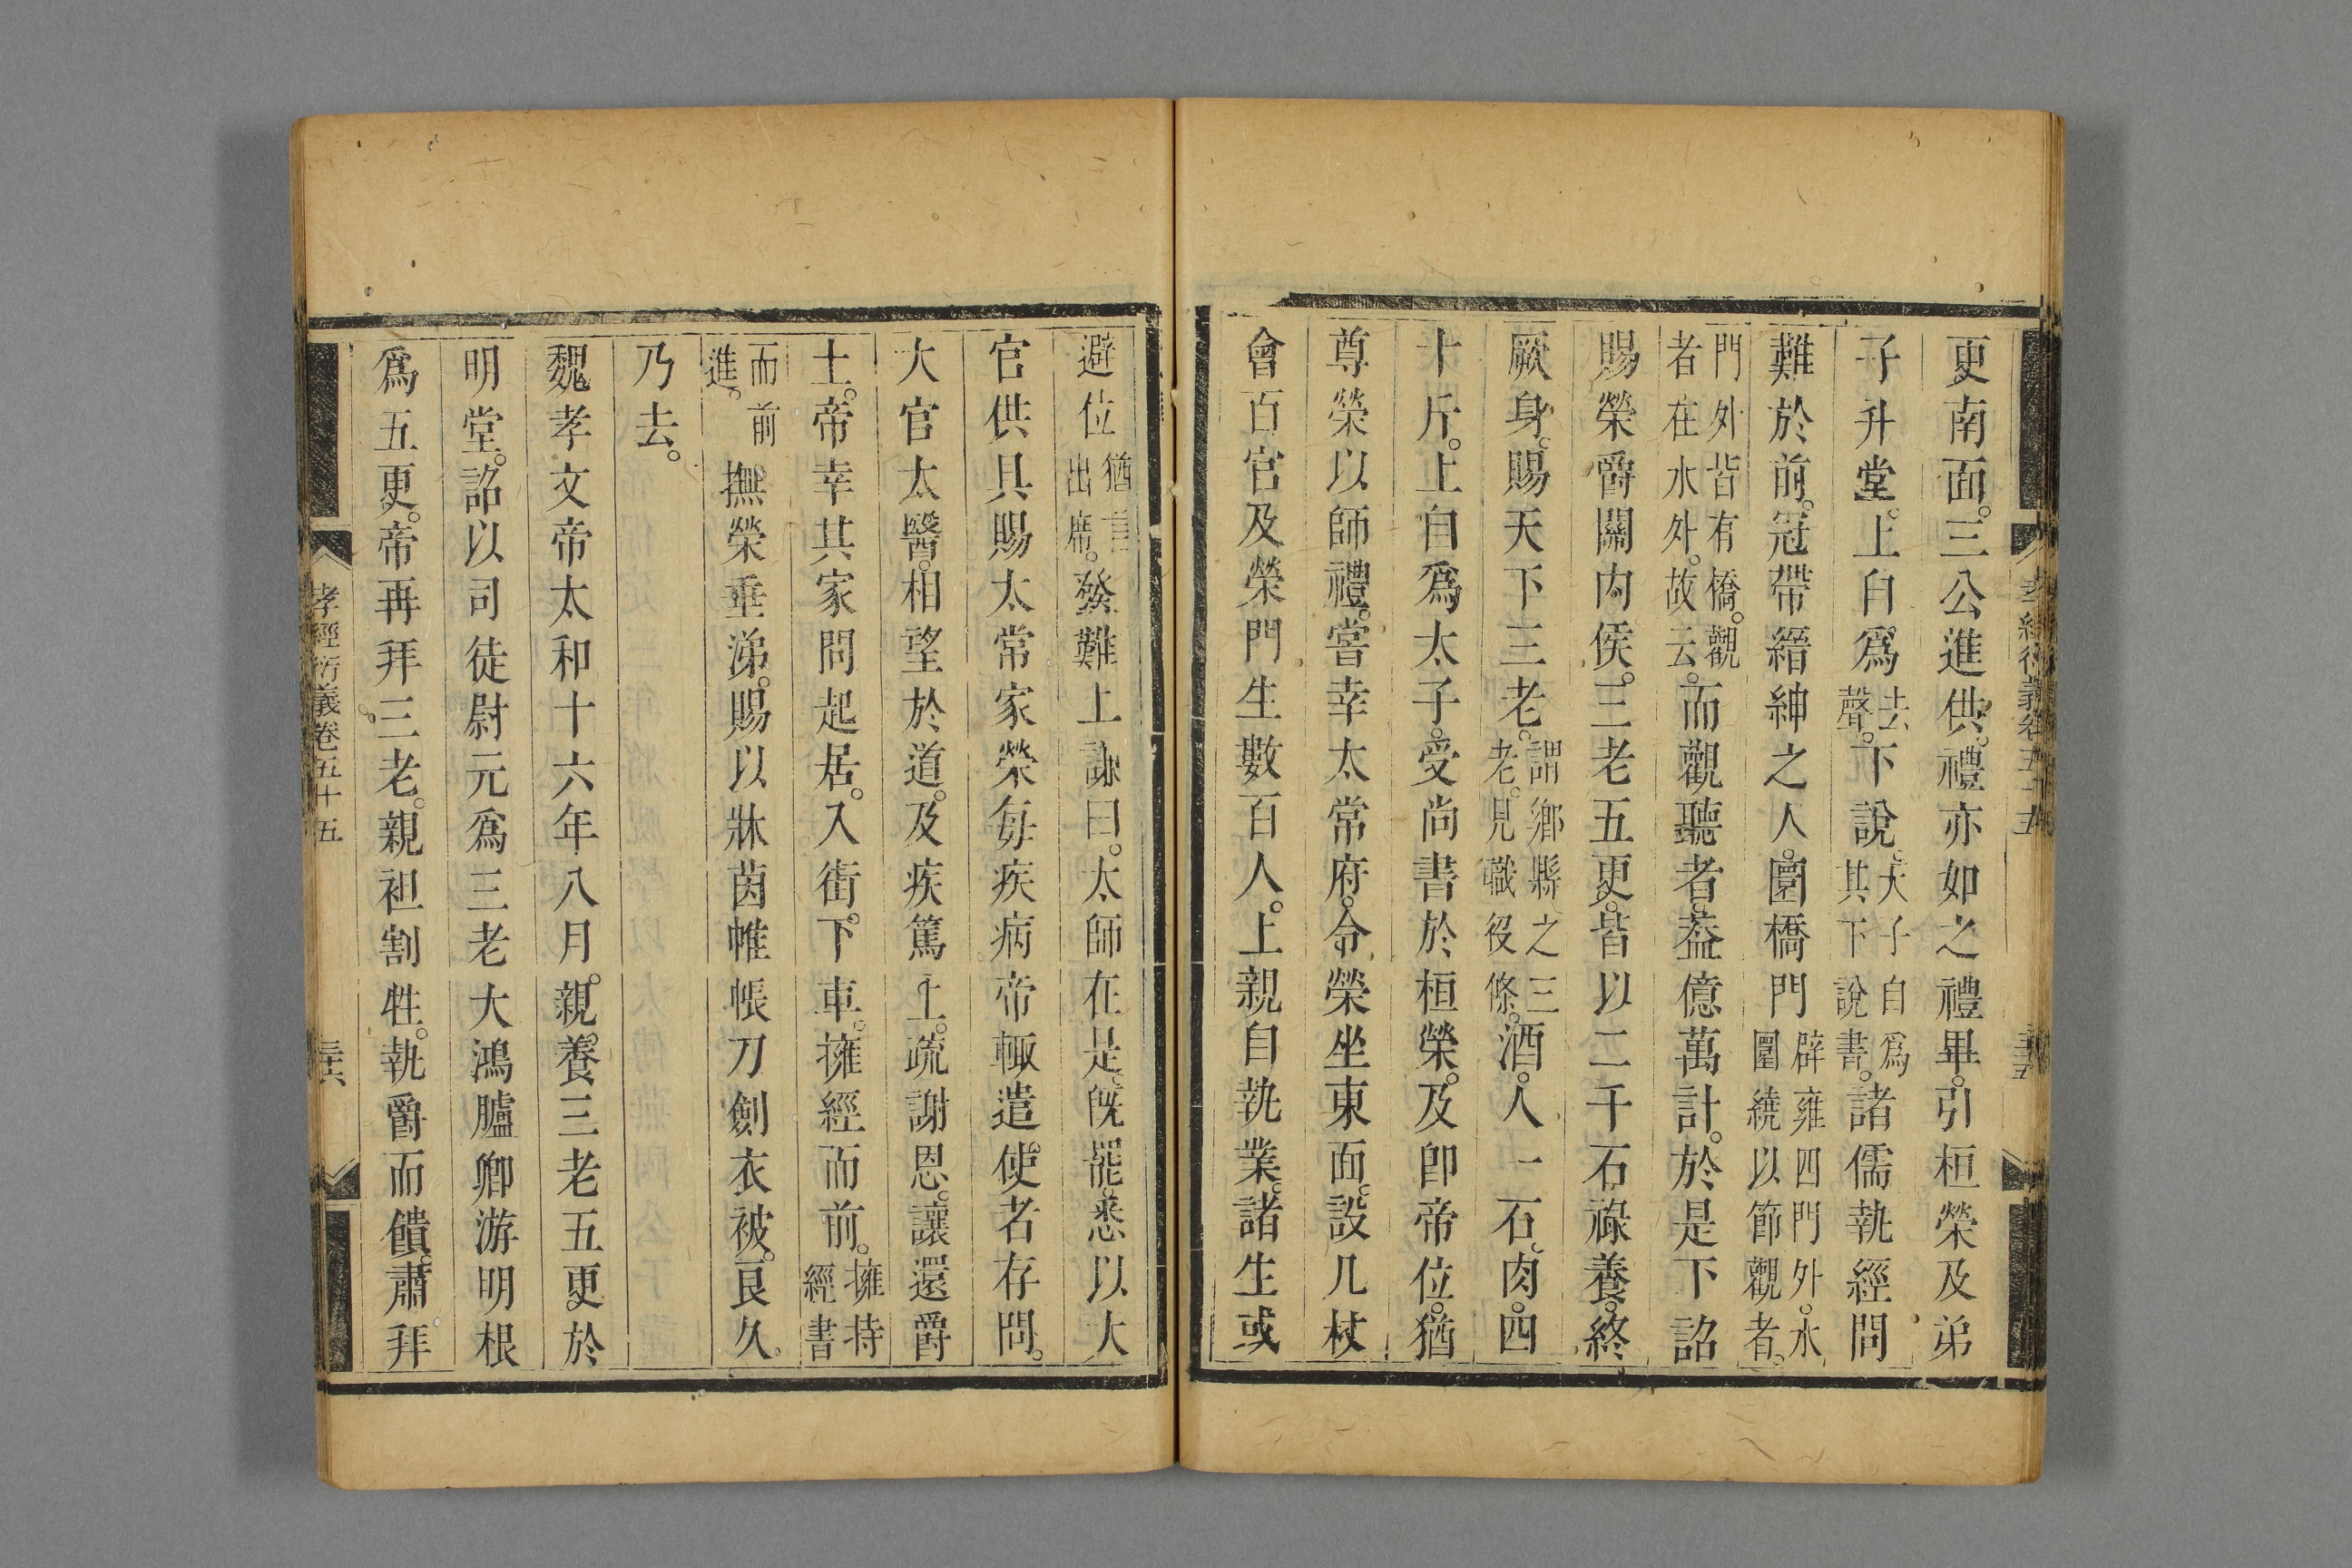 更南面。三公進供。禮亦如之禮畢。引桓榮及弟
子升堂。上自爲去聲。下說。天子自爲其下說書。諸儒執經問
難於前。冠帶縉紳之人。圜橋門辟雍四門外。水圜繞以節觀者。
門外皆有橋。觀者在水外。故云。而觀聽者。葢億萬計。於是下詔
賜榮爵關內侯。三老五更。皆以二千石祿養。終
厥身。賜天下三老。謂鄉縣之三老。見職役條。酒。人一石。肉。四
十斤。上自爲太子。受尚書於桓榮。及卽帝位。猶
尊榮以師禮。嘗幸太常府。令榮坐東面。設几杖
會百官及榮門生數百人。上親自執業。諸生或
孝經衍義卷五十五 三十五
避位猶言出席。發難上謙曰。太師在是。旣罷。悉以大
官供具賜太常家榮每疾病帝輒遣。使者存問。
大官太醫。相望於道。及疾篤上。疏謝恩。讓還爵
土。帝幸其家問起居。入街。下車。擁經而前。擁持經書
而前進。撫榮垂涕。賜以牀茵帷帳刀劍衣被。良久。
乃去。
魏孝文帝太和十六年八月。親。養三老五更於
明堂。詔以司徒尉元爲三老大鴻臚卿游明根
爲五更。帝再拜三老。親袒割牲。執爵而饋。肅拜
孝經衍義卷五十五 三十六